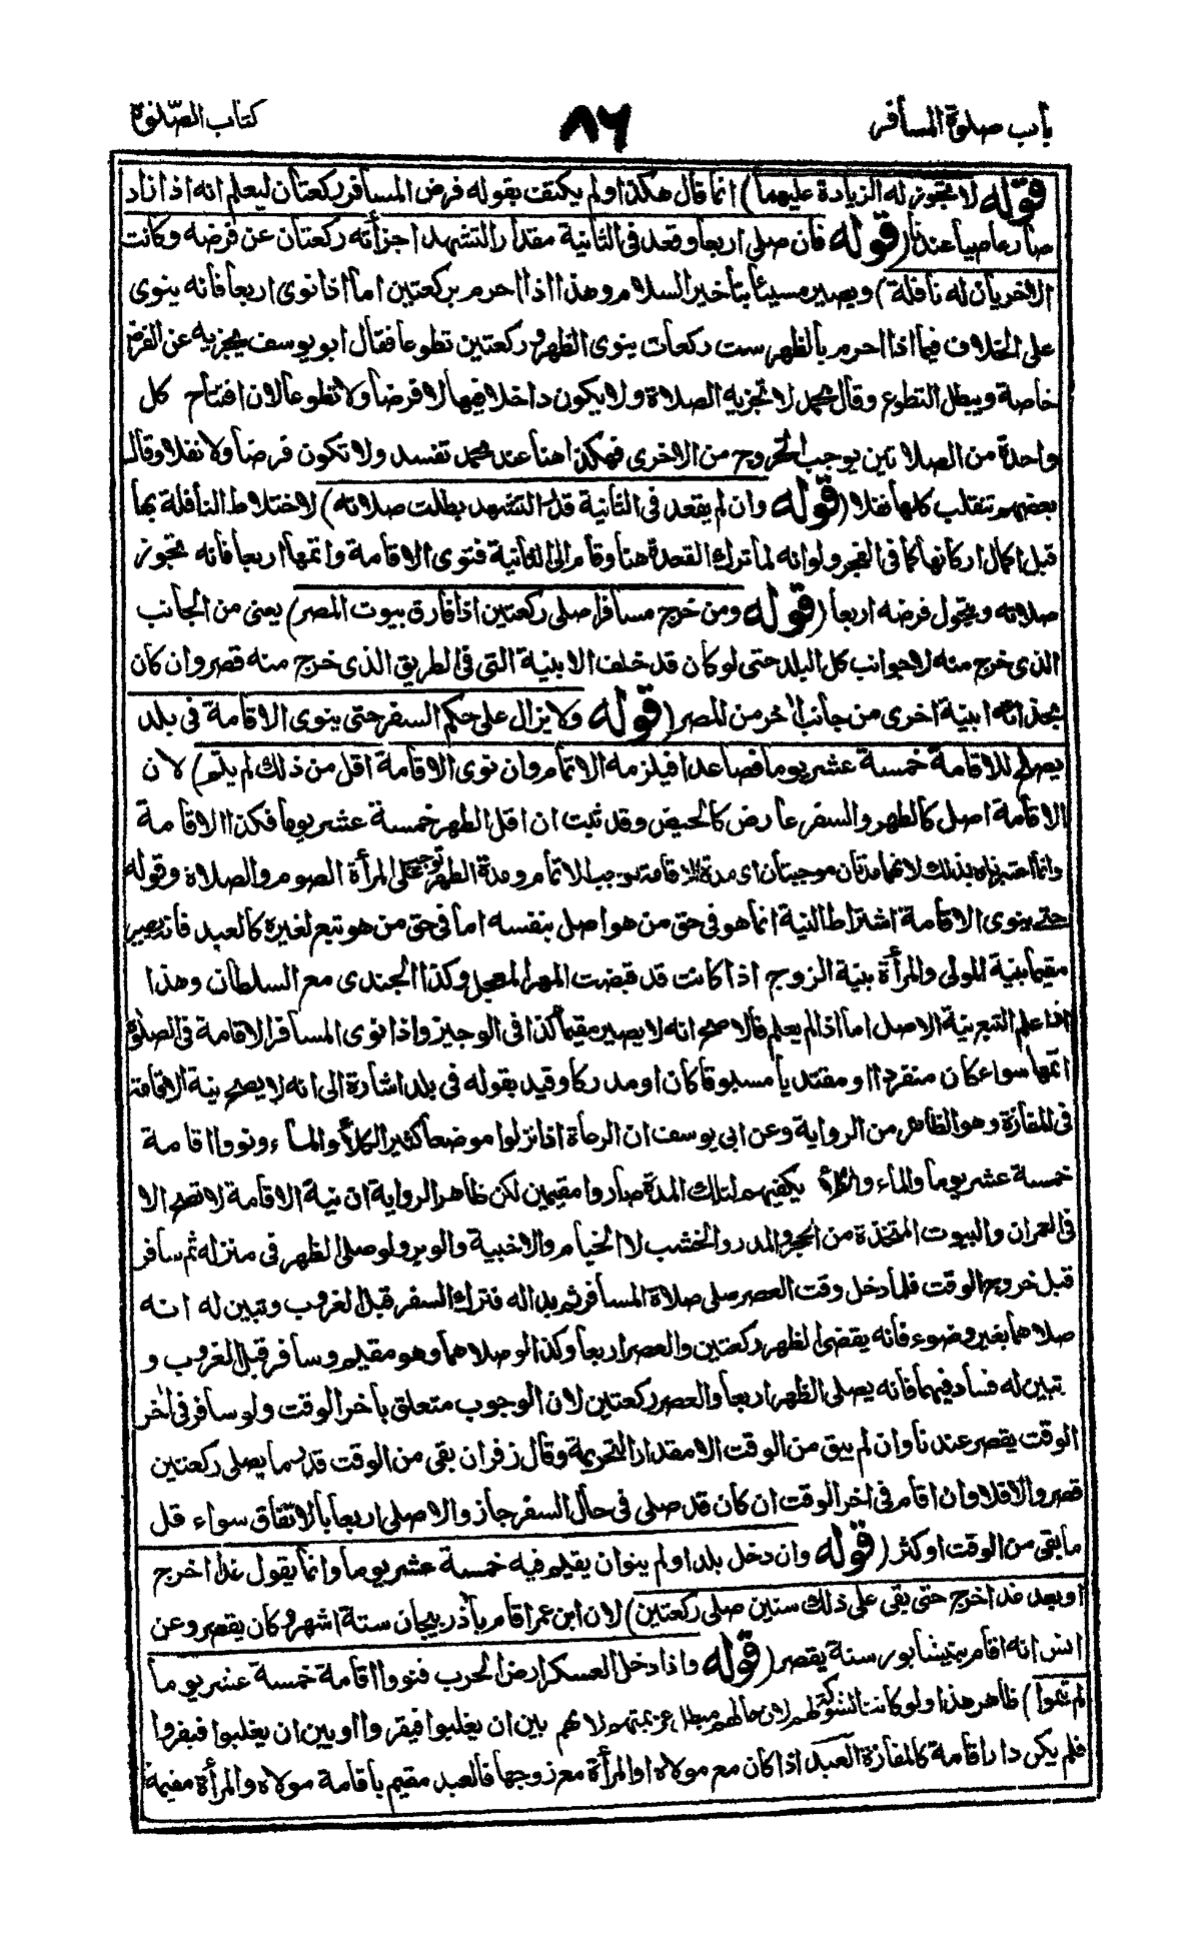 باب صلوة المسافر
٨٦
كتاب الصلوة
قوله لا تجوز له الزيادة عليهما) انما قال هكذا ولم يكتف بقوله فرض المسافر ركعتان ليعلم انه اذا زاد
صار عاصيا عندنا (قوله فان صلى اربعا وقعد فى الثانية مقدار التشهد اجزأته ركعتان عن فرضه وكانت
الاخريان له نافلة) ويصير مسيئا بتأخير السلام وهذا اذا احرم بركعتين اما اذا نوى اربعا فانه ينوى
على الخلاف فيما اذا احرم بالظهر ست ركعات ينوى الظهر و ركعتين تطوعا فقال ابو يوسف يجزيه عن الفرض
خاصة ويبطل التطوع وقال محمد لا تجزيه الصلاة ولا يكون داخلا فيها لا فرضا ولا تطوعا لان افتتاح كل
واحدة من الصلاتين يوجب الخروج من الاخرى فهكذا هنا عند محمد تفسد ولا تكون فرضا ولا نفلا وقال
بعضهم تنقلب كلها نفلا (قوله وان لم يقعد فى الثانية قدر التشهد بطلت صلاته) لاختلاط النافلة بها
قبل اكمال اركانها كما فى الفجر ولو انه لما ترك القعدة هنا وقام الى الثانية فنوى الاقامة واتمها اربعا فانه تجوز
صلاته ويتحول فرضه اربعا (قوله ومن خرج مسافرا صلى ركعتين اذا فارق بيوت المصر) يعنى من الجانب
الذى خرج منه لا جوانب كل البلد حتى لو كان قد خلف الابنية التى فى الطريق الذى خرج منه قصر وان كان
بحذائه ابنية اخرى من جانب اخر من المصر (قوله ولا يزال على حكم السفر حتى ينوى الاقامة فى بلد
يصلح للاقامة خمسة عشر يوما فصاعدا فيلزمه الاتمام وان نوى الاقامة اقل من ذلك لم يتم) لان
الاقامة اصل كالطهر والسفر عارض كالحيض وقد ثبت ان اقل الطهر خمسة عشر يوما فكذا الاقامة
وانما اعتبرناه بذلك لانهما مدتان موجبتان اى مدة الاقامة توجب الاتمام ومدة الطهر توجب على المرأة الصوم والصلاة وقوله
حتى ينوى الاقامة اشتراط النية انما هو فى حق من هو اصل بنفسه اما فى حق من هو تبع لغيره كالعبد فانه يصير
مقيما بنية المولى والمرأة بنية الزوج اذا كانت قد قبضت المهر المعجل وكذا الجندى مع السلطان وهذا
اذا علم التبع بنية الاصل اما اذا لم يعلم فالاصح انه لا يصير مقيما كذا فى الوجيز واذا نوى المسافر الاقامة فى الصلوة
اتمها سواء كان منفردا او مقتديا مسبوقا كان او مدركا وقيد بقوله فى بلد اشارة الى انه لا يصح نية الاقامة
فى المفازة وهو الظاهر من الرواية وعن ابى يوسف ان الرعاة اذا نزلوا موضعا كثير الكلأ والماء ونووا اقامة
خمسة عشر يوما والماء والكلأ يكفيهم لتلك المدة صاروا مقيمين لكن ظاهر الرواية ان نية الاقامة لا تصح الا
فى العمران والبيوت المتخذة من الحجر والمدر والخشب لا الخيام والاخبية والوبر ولو صلى الظهر فى منزله ثم سافر
قبل خروج الوقت فلما دخل وقت العصر صلى صلاة المسافر ثم بدا له فترك السفر قبل الغروب وتبين له انه
صلاهما بغير وضوء فانه يقضى الظهر ركعتين والعصر اربعا وكذا لو صلاهما وهو مقيم وسافر قبل الغروب و
تبين له فساد فيهما فانه يصلى الظهر اربعا والعصر ركعتين لان الوجوب متعلق بآخر الوقت ولو سافر فى اٰخر
الوقت يقصر عندنا وان لم يبق من الوقت الا مقدار التحريمة وقال زفر ان بقى من الوقت قدر ما يصلى ركعتين
قصر والا فلا وان اقام فى اخر الوقت ان كان قد صلى فى حال السفر جاز والا صلى اربعا بالاتفاق سواء قل
ما بقى من الوقت او كثر (قوله وان دخل بلدا ولم ينو ان يقيم فيه خمسة عشر يوما وانما يقول غدا اخرج
او بعد غد اخرج حتى بقى على ذلك سنين صلى ركعتين) لان ابن عمر اقام بأذربيجان ستة اشهر وكان يقصر وعن
انس انه اقام بنيشابور سنة يقصر (قوله واذا دخل العسكر ارض الحرب فنووا اقامة خمسة عشر يوما
لم تموا) ظاهر هذا ولو كانت الشوكة لهم لان حالهم مبطل عزيمتهم لانهم بين ان يغلبوا فيقروا او بين ان يغلبوا فيفروا
فلم يكن دار اقامة كالمفازة العبد اذا كان مع مولاه او المرأة مع زوجها فالعبد مقيم باقامة مولاه والمرأة مقيمة